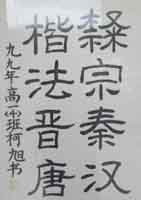 隸宗秦汉
楷法晋唐
九九年高一(4)班柯旭书